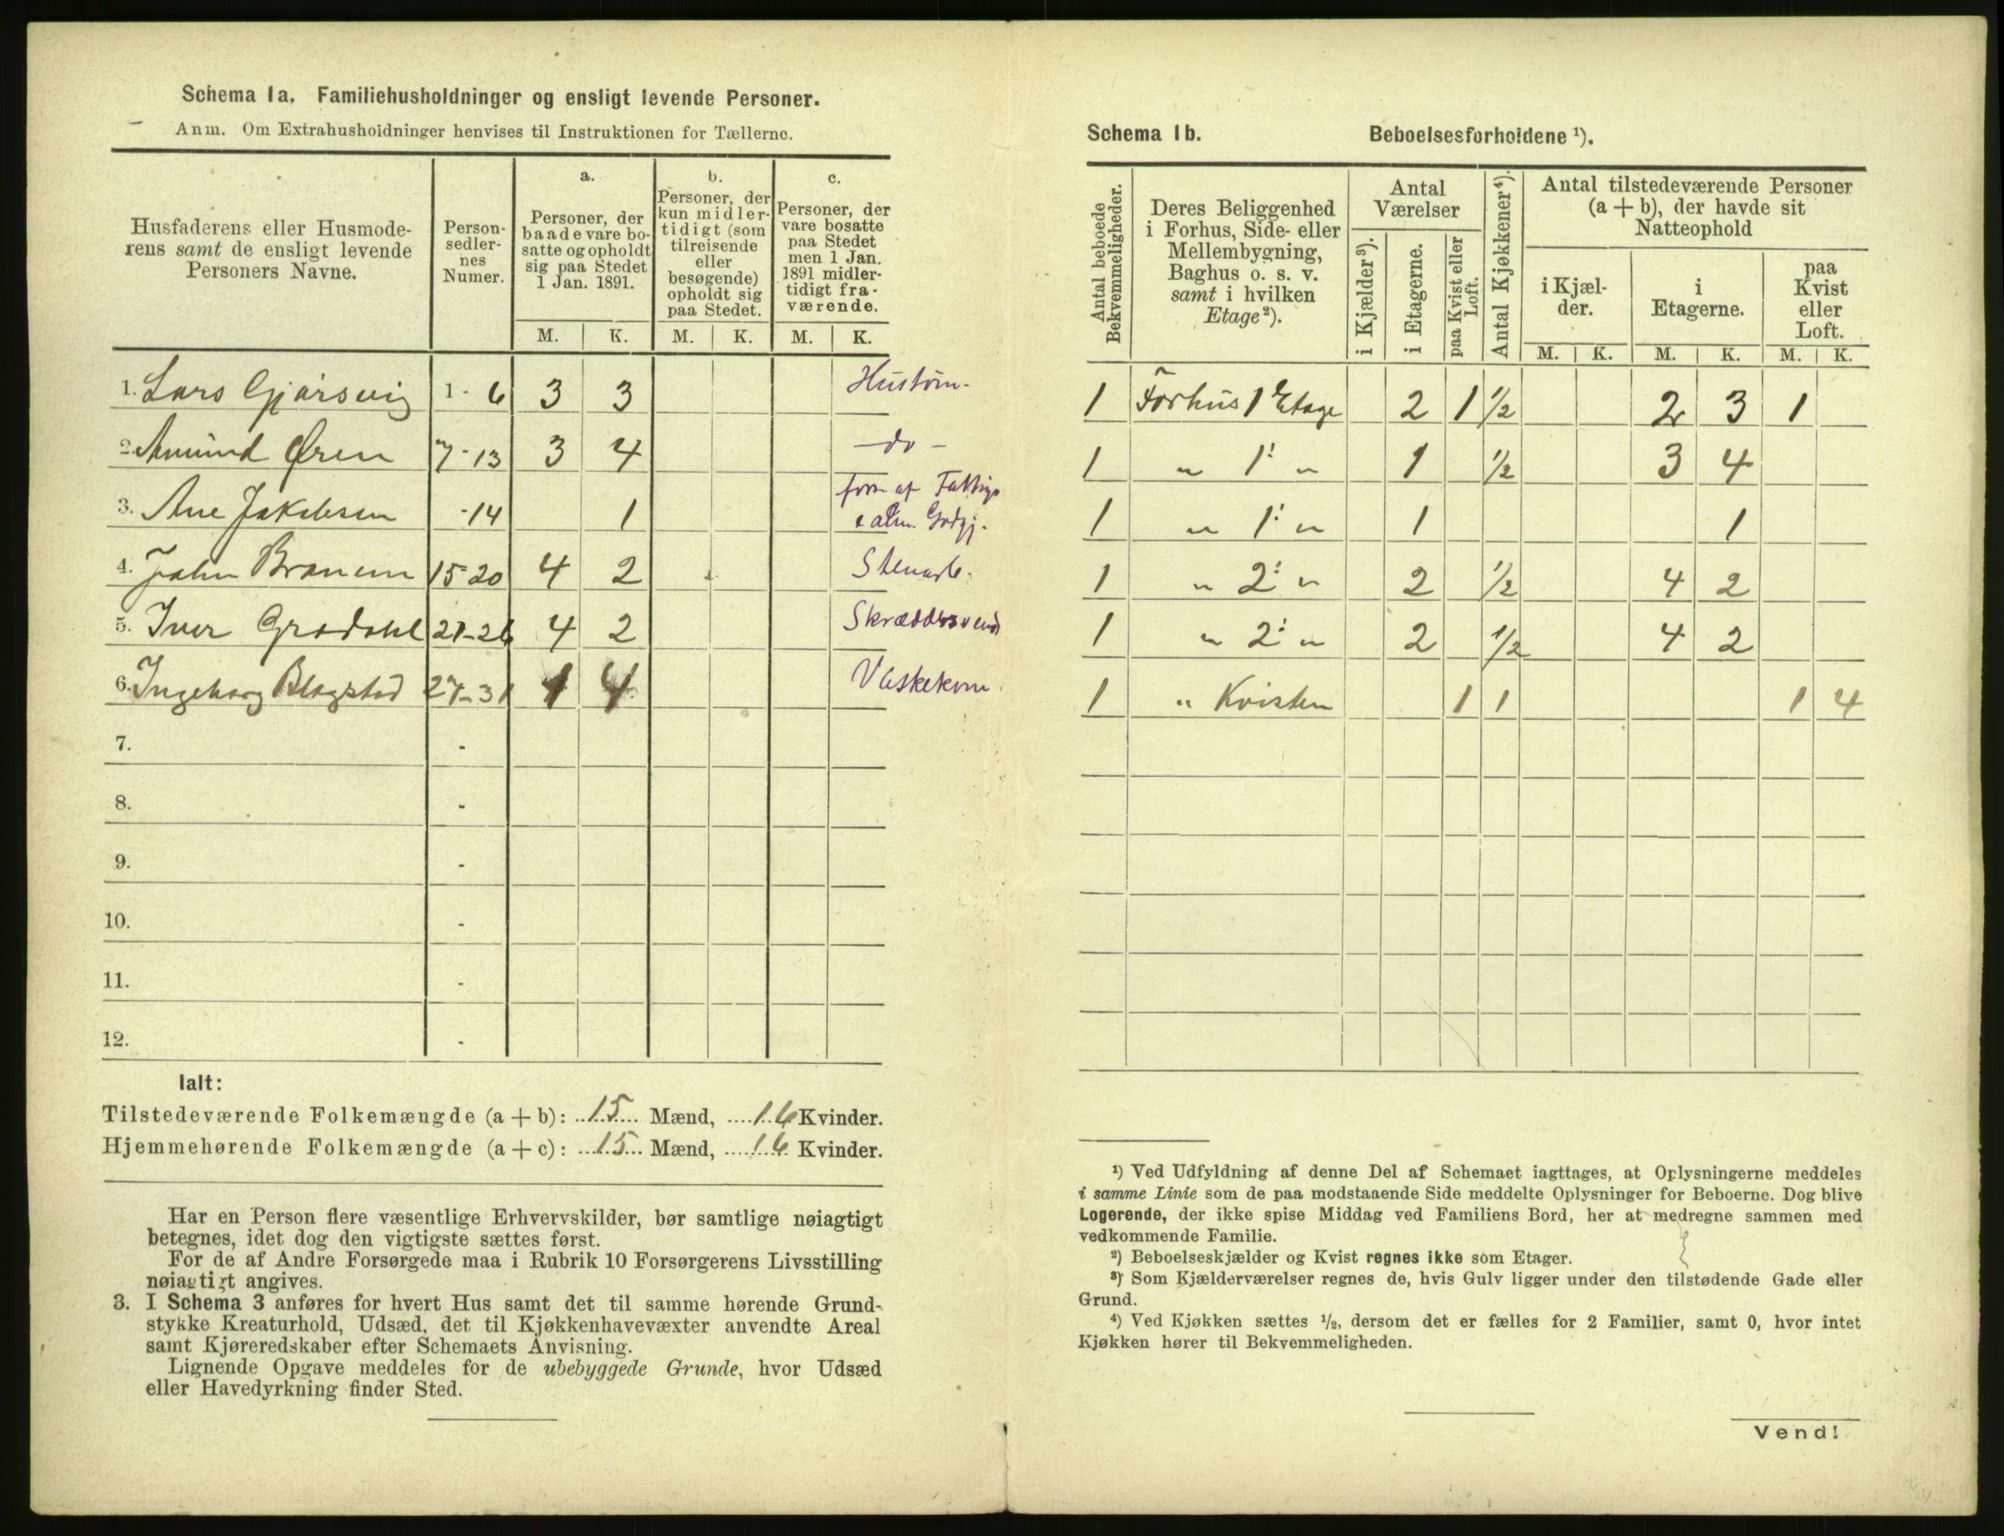 Schema 1a. Familiehusholdninger og ensligt levende Personer.
Anm. Om Extrahusholdninger henvises til Instruktionen for Tællerne.
Husfaderens eller Husmode-
rens samt de ensligt levende
Personers Navne.
Person-
sedler-
nes
Numer.
a.
Personer, der
baade vare bo-
satte og opholdt
sig paa Stedet
1 Jan. 1891.
b.
Personer, der
kun midler-
tidigt (som
tilreisende
eller
besøgende)
opholdt sig
paa Stedet.
c.
Personer, der
vare bosatte
paa Stedet
men 1 Jan.
1891 midler-
tidigt fra-
værende.
M. K. M. K. M. K.
1. Lars Gjørsvig 1 - 6 3 3 Hustøm.
2 Amund Øren 7-13 3 4 - do -
3. Ane Jakobsen -14 1 fors. af Fattigv
& alm. Godgj.
4. John Bronem 15-20 4 2 Stenarb.
5. Iver Grødahl 21-26 4 2 Skræddersvend
6. Ingeborg Blegstad 27-31 1 4 Vaskekone
7. -
8. -
9. -
10. -
11. -
12. -
Ialt:
Tilstedeværende Folkemængde (a + b): 15 Mænd, 16 Kvinder.
Hjemmehørende Folkemængde (a + c): 15 Mænd, 16 Kvinder.
Har en Person flere væsentlige Erhvervskilder, bør samtlige nøiagtigt
betegnes, idet dog den vigtigste sættes først.
For de af Andre Forsørgede maa i Rubrik 10 Forsørgerens Livsstilling
nøiagtigt angives.
3. I Schema 3 anføres for hvert Hus samt det til samme hørende Grund-
stykke Kreaturhold, Udsæd, det til Kjøkkenhavevæxter anvendte Areal
samt Kjøreredskaber efter Schemaets Anvisning.
Lignende Opgave meddeles for de ubebyggede Grunde, hvor Udsæd
eller Havedyrkning finder Sted.
Schema 1b. Beboelsesforholdene ¹).
Antal beboede
Bekvemmeligheder.
Deres Beliggenhed
i Forhus, Side- eller
Mellembygning,
Baghus o. s. v.
samt i hvilken
Etage²).
Antal
Værelser
i Kjælder³).
i Etagerne.
paa Kvist eller
Loft.
Antal Kjøkkener⁴).
Antal tilstedeværende Personer
(a + b), der havde sit
Natteophold
i Kjæl-
der.
i
Etagerne.
paa
Kvist
eller
Loft.
M. K. M. K. M. K.
1 Forhus 1 Etage 2 1 1/2 2 3 1
1 " 1: " 1 1/2 3 4
1 " 1: " 1 1
1 " 2: " 2 1/2 4 2
1 " 2: " 2 1/2 4 2
1 " Kvisten 1 1 1 4
¹) Ved Udfyldning af denne Del af Schemaet iagttages, at Oplysningerne meddeles
i samme Linie som de paa modstaaende Side meddelte Oplysninger for Beboerne. Dog blive
Logerende, der ikke spise Middag ved Familiens Bord, her at medregne sammen med
vedkommende Familie.
²) Beboelseskjælder og Kvist regnes ikke som Etager.
³) Som Kjælderværelser regnes de, hvis Gulv ligger under den tilstødende Gade eller
Grund.
⁴) Ved Kjøkken sættes ½, dersom det er fælles for 2 Familier, samt 0, hvor intet
Kjøkken hører til Bekvemmeligheden.
Vend!